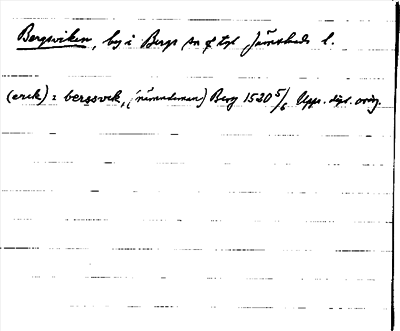 Bergsviken, by i Bergs sn o tgl Jämtlands l.
(erik) i bergsvik, (nämndeman) Berg 1530 5/6 Upps. dipl. orig.